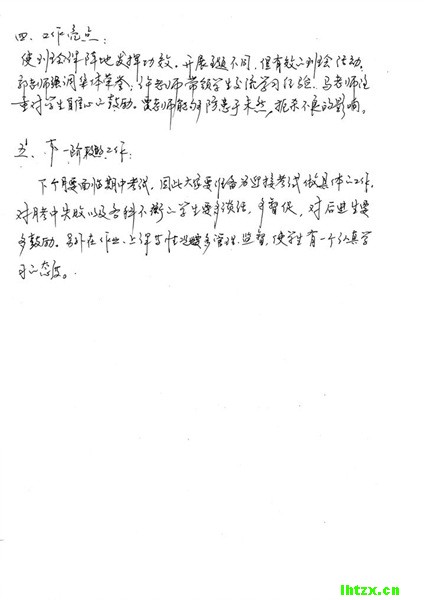 四、工作亮点：
使班会阵地发挥功效。开展主题不同，但有效的班会活动，
郭老师强调集体荣誉，许老师带领学生交流学习经验，马老师注
重对学生自信心的鼓励。贾老师能够防患于未然，扼杀不良的影响。
五、下一阶段的工作：
下个月要面临期中考试，因此大家要准备为迎接考试做具体的工作，
对月考中失败以及各科不衡的学生要多谈话，多督促，对后进生要
多鼓励。另外在作业、上课等情况要多管理、监督，使学生有一个认真学
习的态度。
lhtzx.cn